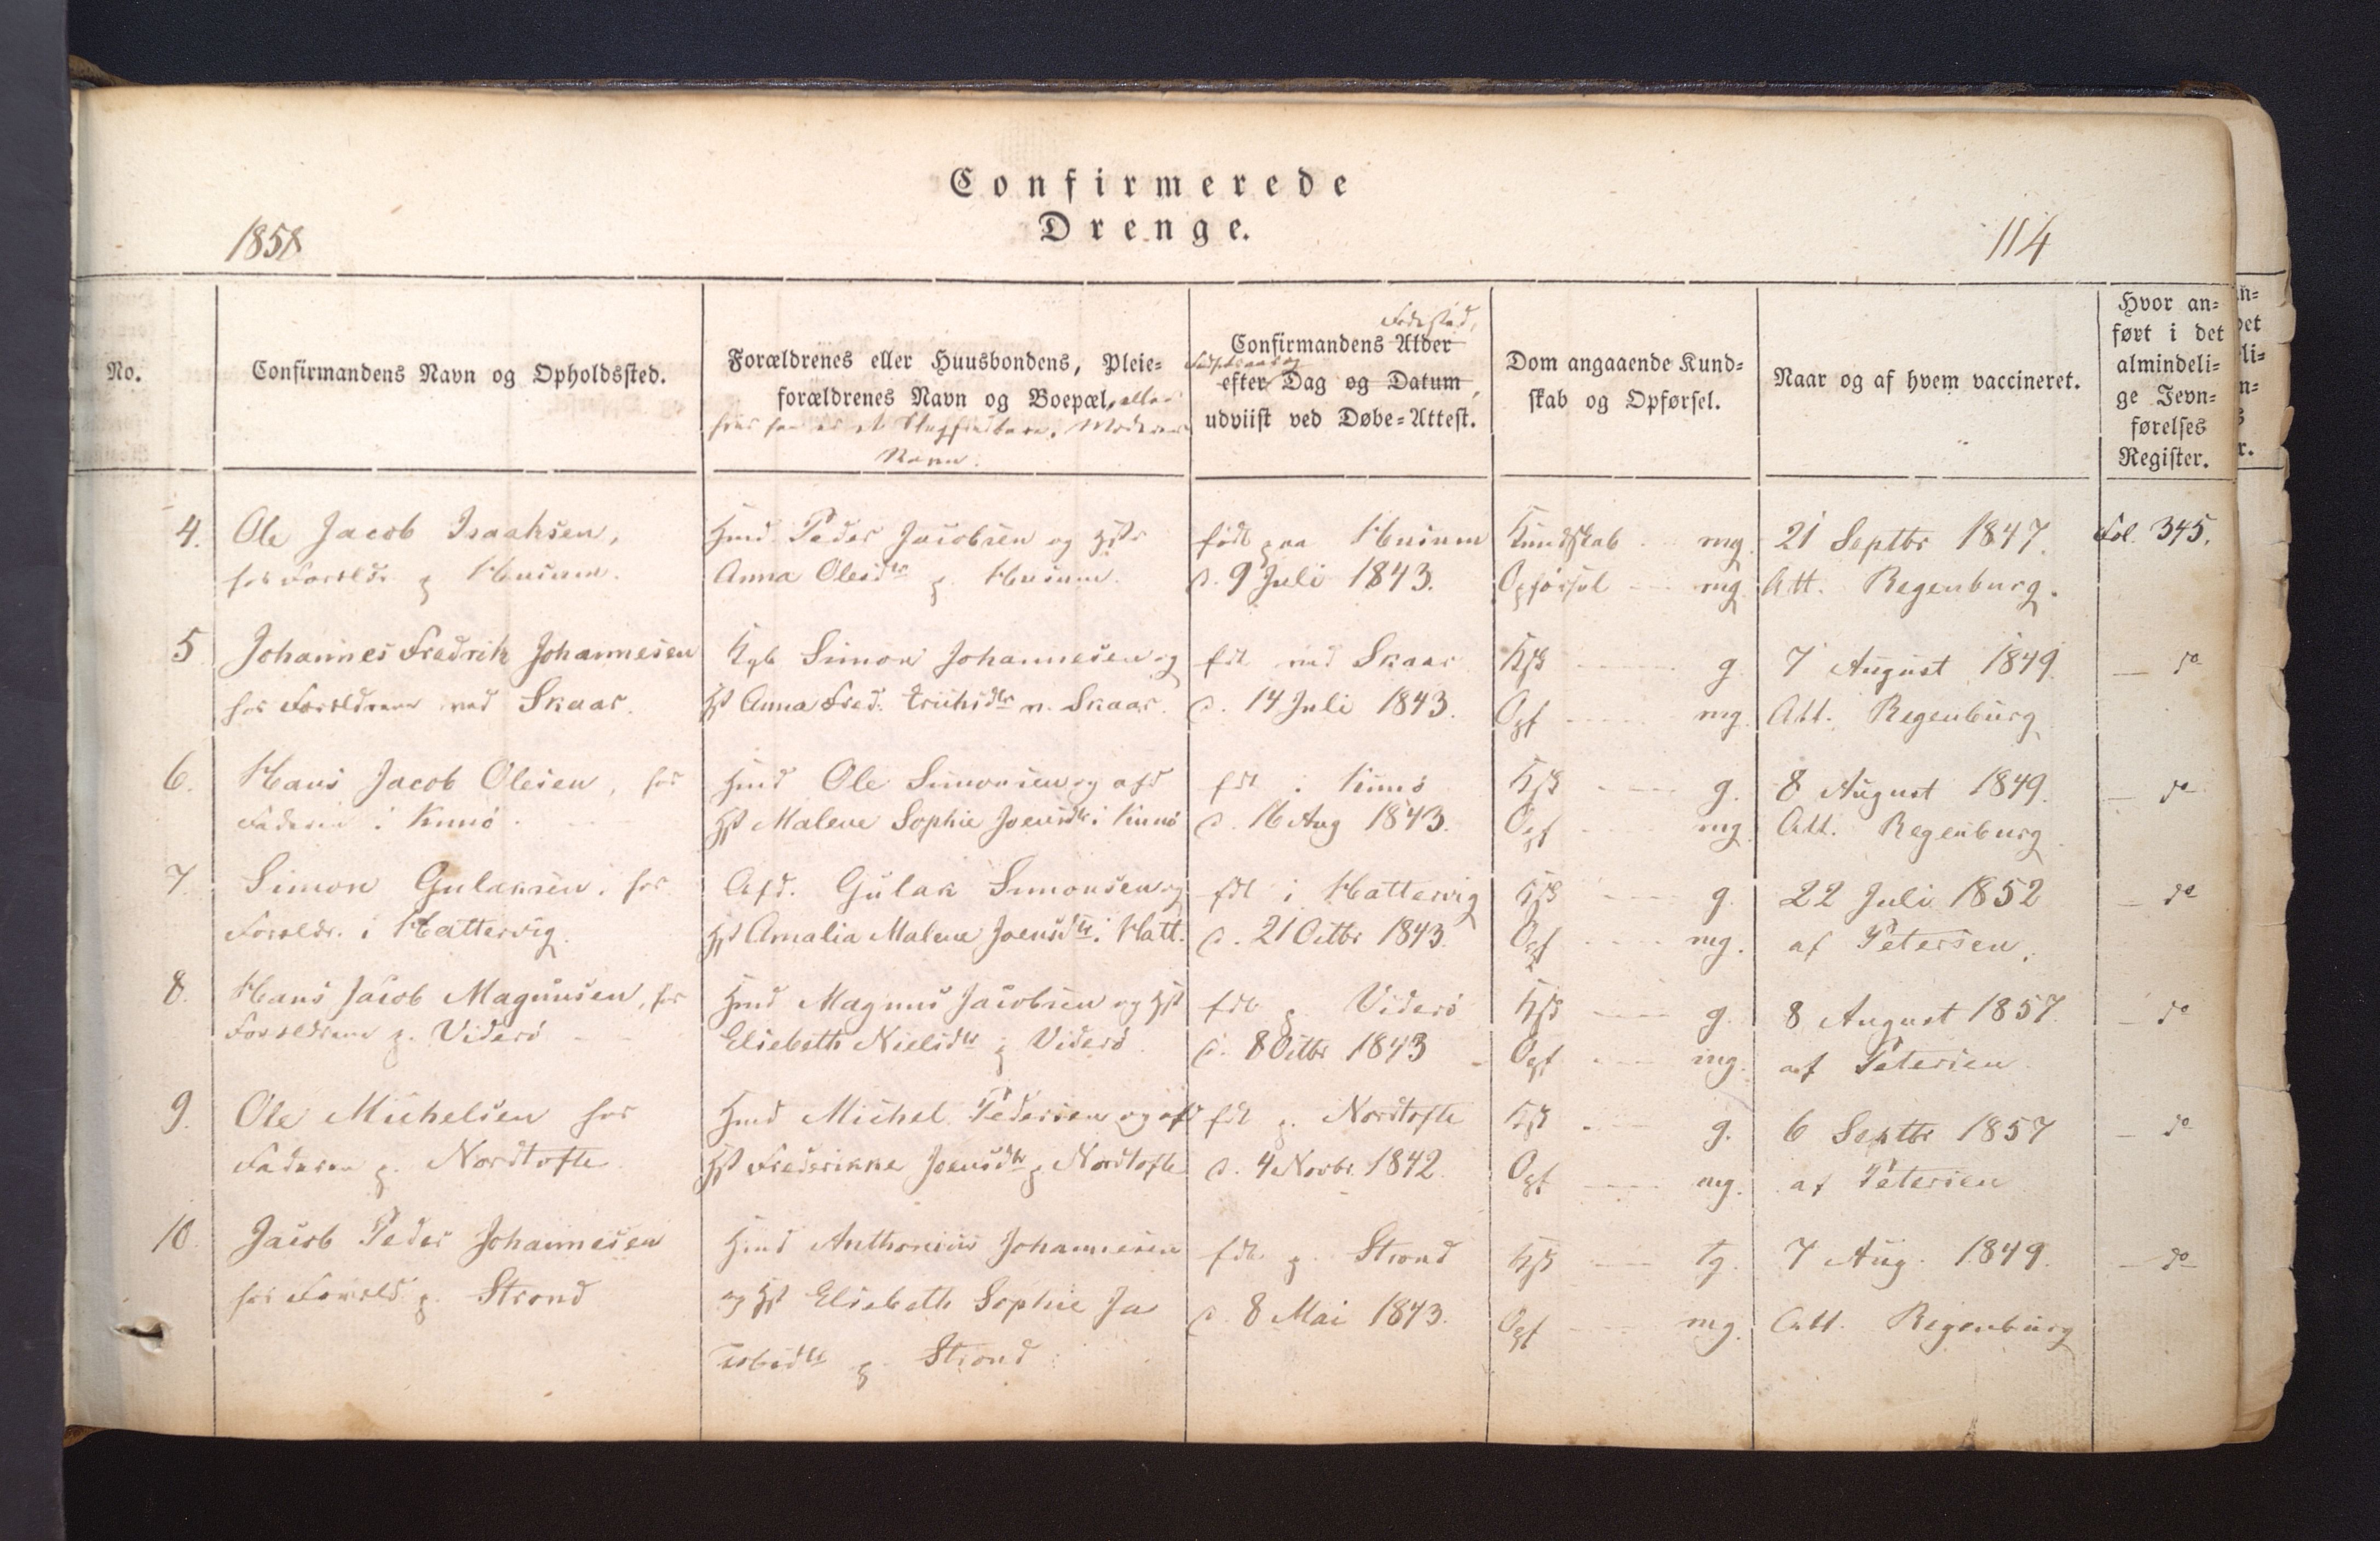 Confirmerede
Drenge.
1858
114
No.
Confirmandens Navn og Opholdssted.
Forældrenes eller Huusbondens, Pleie-
forældrenes Navn og Boepæl, eller
Moderens
Navn.
Fødested,
Confirmandens Alder
efter Dag og Datum,
udviist ved Døbe-Attest.
Dom angaaende Kund-
skab og Opførsel.
Naar og af hvem vaccineret.
Hvor an-
ført i det
almindeli-
ge Jevn-
førelses
Register.
4.
Ole Jacob Isaksen,
hos Forældr. p Husum.
Hmd. Peder Jacobsen og Hst
Anna Olesdtr p. Husum.
født paa Husum
d. 9 Juli 1843.
Kundskab - mg.
Opførsel - mg.
21 Septbr 1847.
Att. Regenburg.
Fol. 345.
5
Johannes Fredrik Johannesen
hos Forældrene ved Skaar.
Kgb Simon Johannesen og
Hst Anna Fred. Erichsdtr v. Skaar.
fdt ved Skaar
d. 14 Juli 1843.
Kdsk - g.
Opf - mg.
7 August 1849.
Att. Regenburg
— do
6.
Hans Jacob Olesen, hos
Faderen i Kunø.
Hmd Ole Simonsen og afd
Hst Malene Sophie Joensdtr i Kunø
fdt i Kunø
d. 16 Aug 1843.
Kdsk - g.
Opf - mg.
8 August 1849.
Att. Regenburg
— do
7.
Simon Gulaksen, hos
Forældr. i Hattervig.
Afd. Gulak Simonsen og
Hst Amalia Malene Joensdtr i Hatt.
fdt i Hattervig
d. 21 Octbr 1843.
Kdsk - g.
Opf - mg.
22 Juli 1852
af Petersen.
— do
8.
Hans Jacob Magnusen, hos
Forældrene p. Viderø
Hmd Magnus Jacobsen og Hst
Elsebeth Nielsdtr p Viderø
fdt p. Viderø
d. 8 Octbr 1843
Kdsk - g.
Opf - mg.
8 August 1857.
af Petersen
— do
9.
Ole Michelsen hos
Faderen p. Nordtofte
Hmd Michel Pedersen og afd
Hst Frederikke Joensdtr p Nordtofte
fdt p. Nordtofte
d. 4 Novbr. 1842.
Kdsk - g.
Opf - mg.
6 Septbr 1857
af Petersen
— do
10.
Jacob Peder Johannesen
hos Foreld. p. Strond
Hmd Anthonius Johannesen
og Hst Elsebeth Sophie Ja
cobsdtr p. Strond
fdt p. Strond
d. 8 Mai 1843.
Kdsk - tg.
Opf - mg.
7 Aug. 1849.
Att. Regenburg
— do